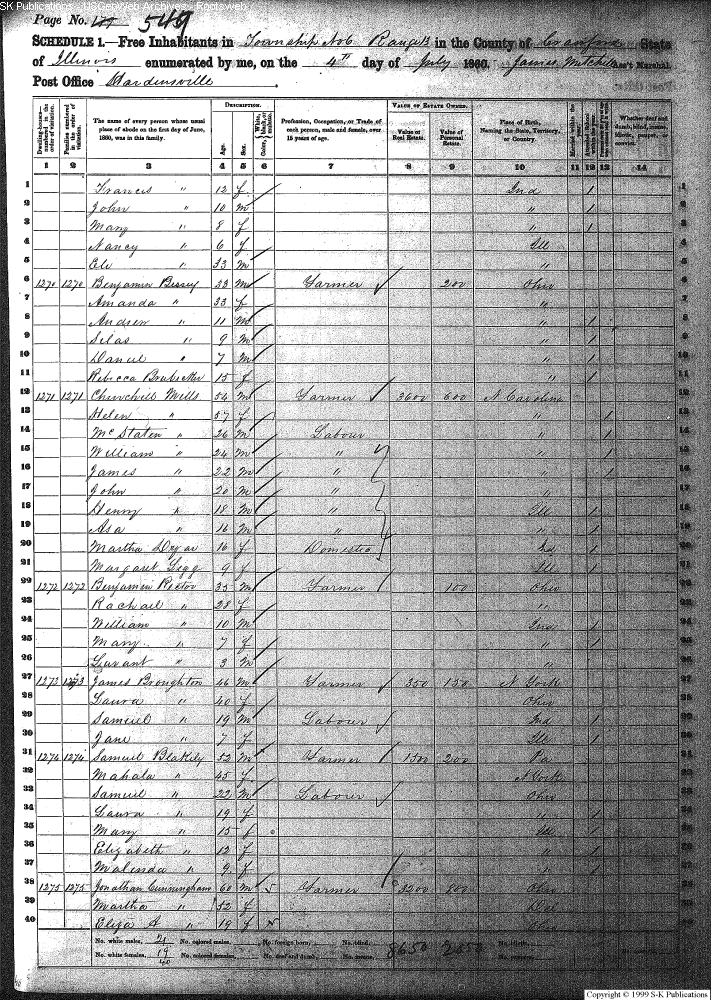 SK Publications - USGenWeb Archives - Rootsweb
Page No. 549
SCHEDULE 1.—Free Inhabitants in Township No 6 Range in the County of Crawford State
of Illinois enumerated by me, on the 4th day of July 1860. James Mitchell Ass't Marshal.
Post Office Hardensville
Dwelling-houses numbered in the order of visitation. Families numbered in the order of visitation. The name of every person whose usual place of abode on the first day of June, 1860, was in this family. DESCRIPTION. Age. Sex. Color, White, black, or mulatto. Profession, Occupation, or Trade of each person, male and female, over 15 years of age. VALUE OF ESTATE OWNED. Value of Real Estate. Value of Personal Estate. Place of Birth, Naming the State, Territory, or Country. Married within the year. Attended School within the year. Whether deaf and dumb, blind, insane, idiotic, pauper, or convict.
1 2 3 4 5 6 7 8 9 10 11 12 13 14
1 Francis " 12 f Ind 1
2 John " 10 m " 1
3 Mary " 8 f " 1
4 Nancy " 6 f Ill
5 Eli " 33 m "
6 1270 1270 Benjamin Bessey 33 m Farmer 200 Ohio
7 Amanda " 33 f "
8 Andrew " 11 m " 1
9 Silas " 9 m " 1
10 Daniel " 7 m " 1
11 Rebecca 15 f " 1
12 1271 1271 Churchill Mills 54 m Farmer 3600 600 N Carolina
13 Helen " 57 f " 1
14 McStaten " 26 m Labour " 1
15 William " 24 m " " 1
16 James " 22 m " " 1
17 John " 20 m " "
18 Henry " 18 m " Ill 1
19 Asa " 16 m " " 1
20 Martha 16 f Domestic Ind 1
21 Margaret Legg 9 f Ill 1
22 1272 1272 Benjamin Rector 35 m Farmer 100 Ohio
23 Rachael " 28 f "
24 William " 10 m Ind 1
25 Mary " 7 f " 1
26 Levant " 3 m "
27 1273 1273 James Broughton 46 m Farmer 350 150 N York
28 Laura " 40 f Ohio
29 Samuel " 19 m Labour Ind 1
30 Jane " 7 f Ill 1
31 1274 1274 Samuel Blakely 52 m Farmer 1500 200 Pa
32 Mahala " 45 f N York
33 Samuel " 22 m Labour Ohio
34 Laura " 19 f " 1
35 Mary " 15 f Ill 1
36 Elizabeth " 12 f "
37 Malinda " 9 f " 1
38 1275 1275 Jonathan Cunningham 60 m Farmer 3200 800 Ohio
39 Martha " 52 f
40 Eliza A " 19 f
No. white males, 21 No. colored males, No. foreign born, No. blind,
No. white females, 19 No. colored females, No. deaf and dumb, No. insane, 8650
40
Copyright © 1999 S-K Publications